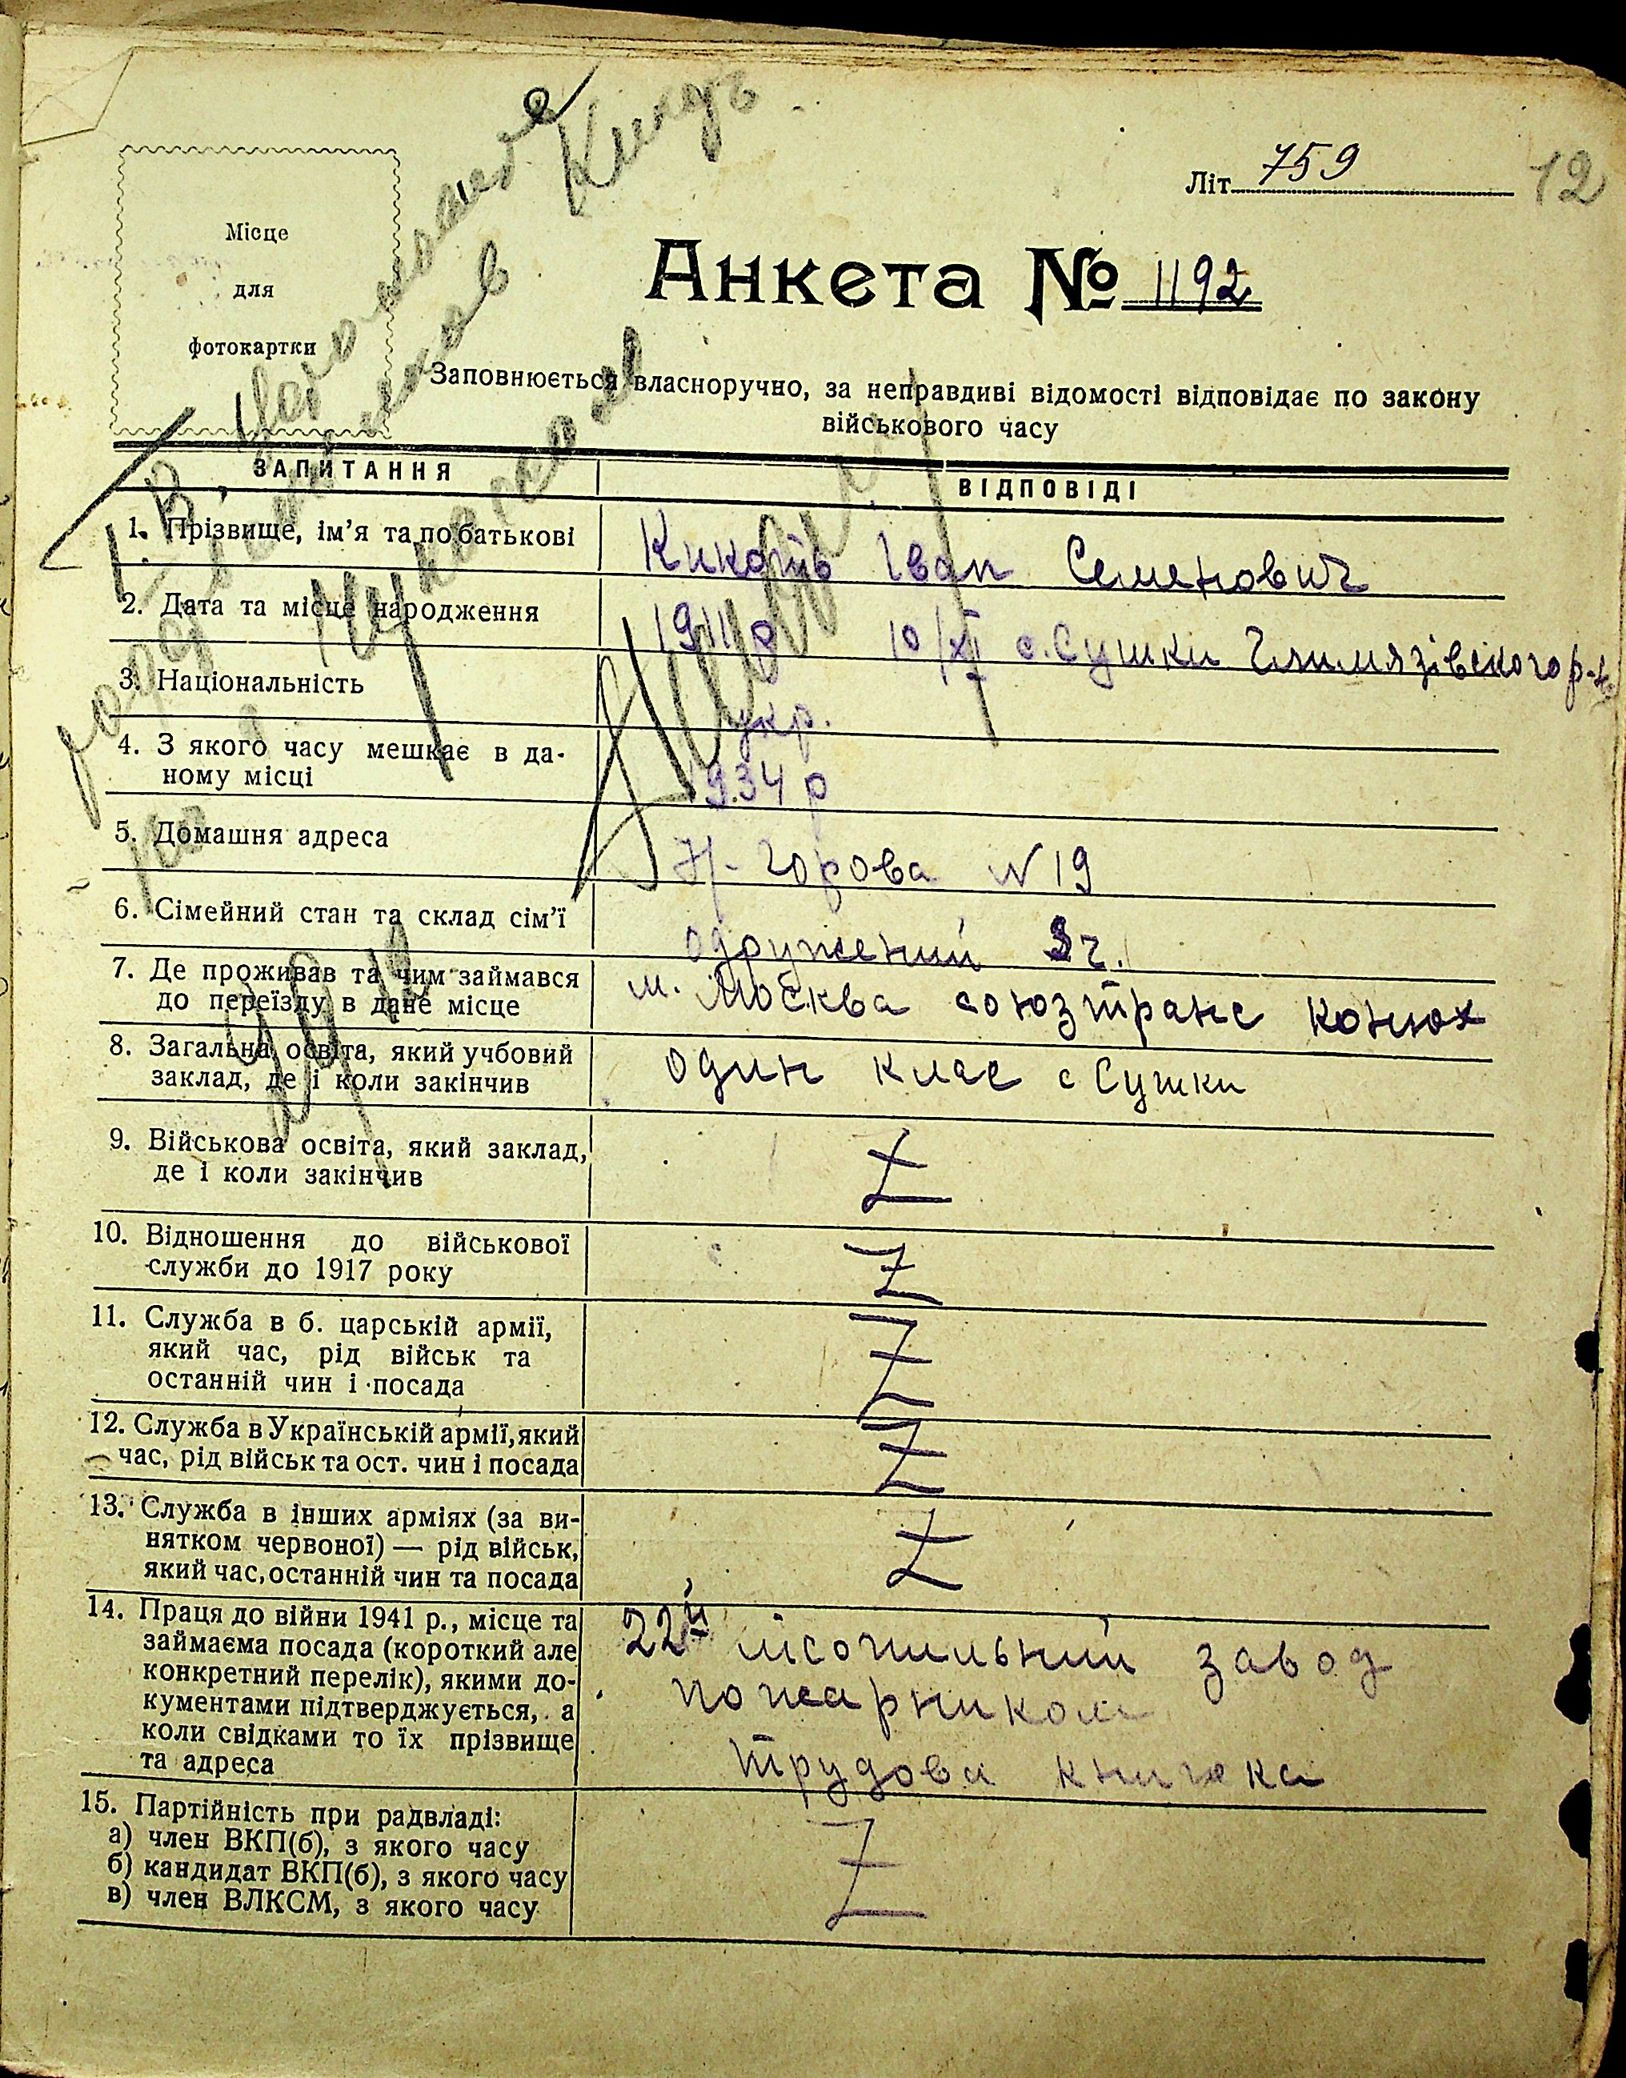 Літ. 759
12
Місце
для
фотокартки
Анкета № 1192
Заповнюється власноручно, за неправдиві відомості відповідає по закону
військового часу
ЗАПИТАННЯ
ВІДПОВІДІ
1. Прізвище, ім’я та по батькові
Іван Семенович
2. Дата та місце народження
1911 р 10/XII с. Сушки
3. Національність
укр.
4. З якого часу мешкає в да-
ному місці
1934 р
5. Домашня адреса
Н-Горова N 19
6. Сімейний стан та склад сім’ї
одружений 3 ч.
7. Де проживав та чим займався
до переїзду в дане місце
м. Москва союзтранс конюх
8. Загальна освіта, який учбовий
заклад, де і коли закінчив
один клас с Сушки
9. Військова освіта, який заклад,
де і коли закінчив
Z
10. Відношення до військової
служби до 1917 року
Z
11. Служба в б. царській армії,
який час, рід військ та
останній чин і посада
Z
12. Служба в Українській армії, який
час, рід військ та ост. чин і посада
Z
13. Служба в інших арміях (за ви-
нятком червоної) — рід військ,
який час, останній чин та посада
Z
14. Праця до війни 1941 р., місце та
займаєма посада (короткий але
конкретний перелік), якими до-
кументами підтверджується, а
коли свідками то їх прізвище
та адреса
22й лісопильний завод
пожарником
трудова книжка
15. Партійність при радвладі:
а) член ВКП(б), з якого часу
б) кандидат ВКП(б), з якого часу
в) член ВЛКСМ, з якого часу
Z